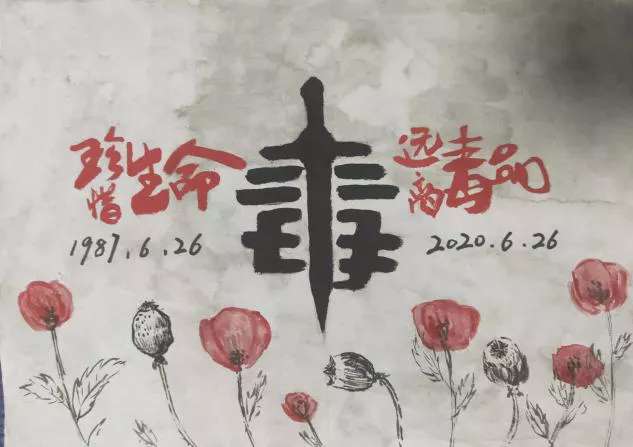 珍惜生命
毒
远离毒品
1987.6.26
2020.6.26